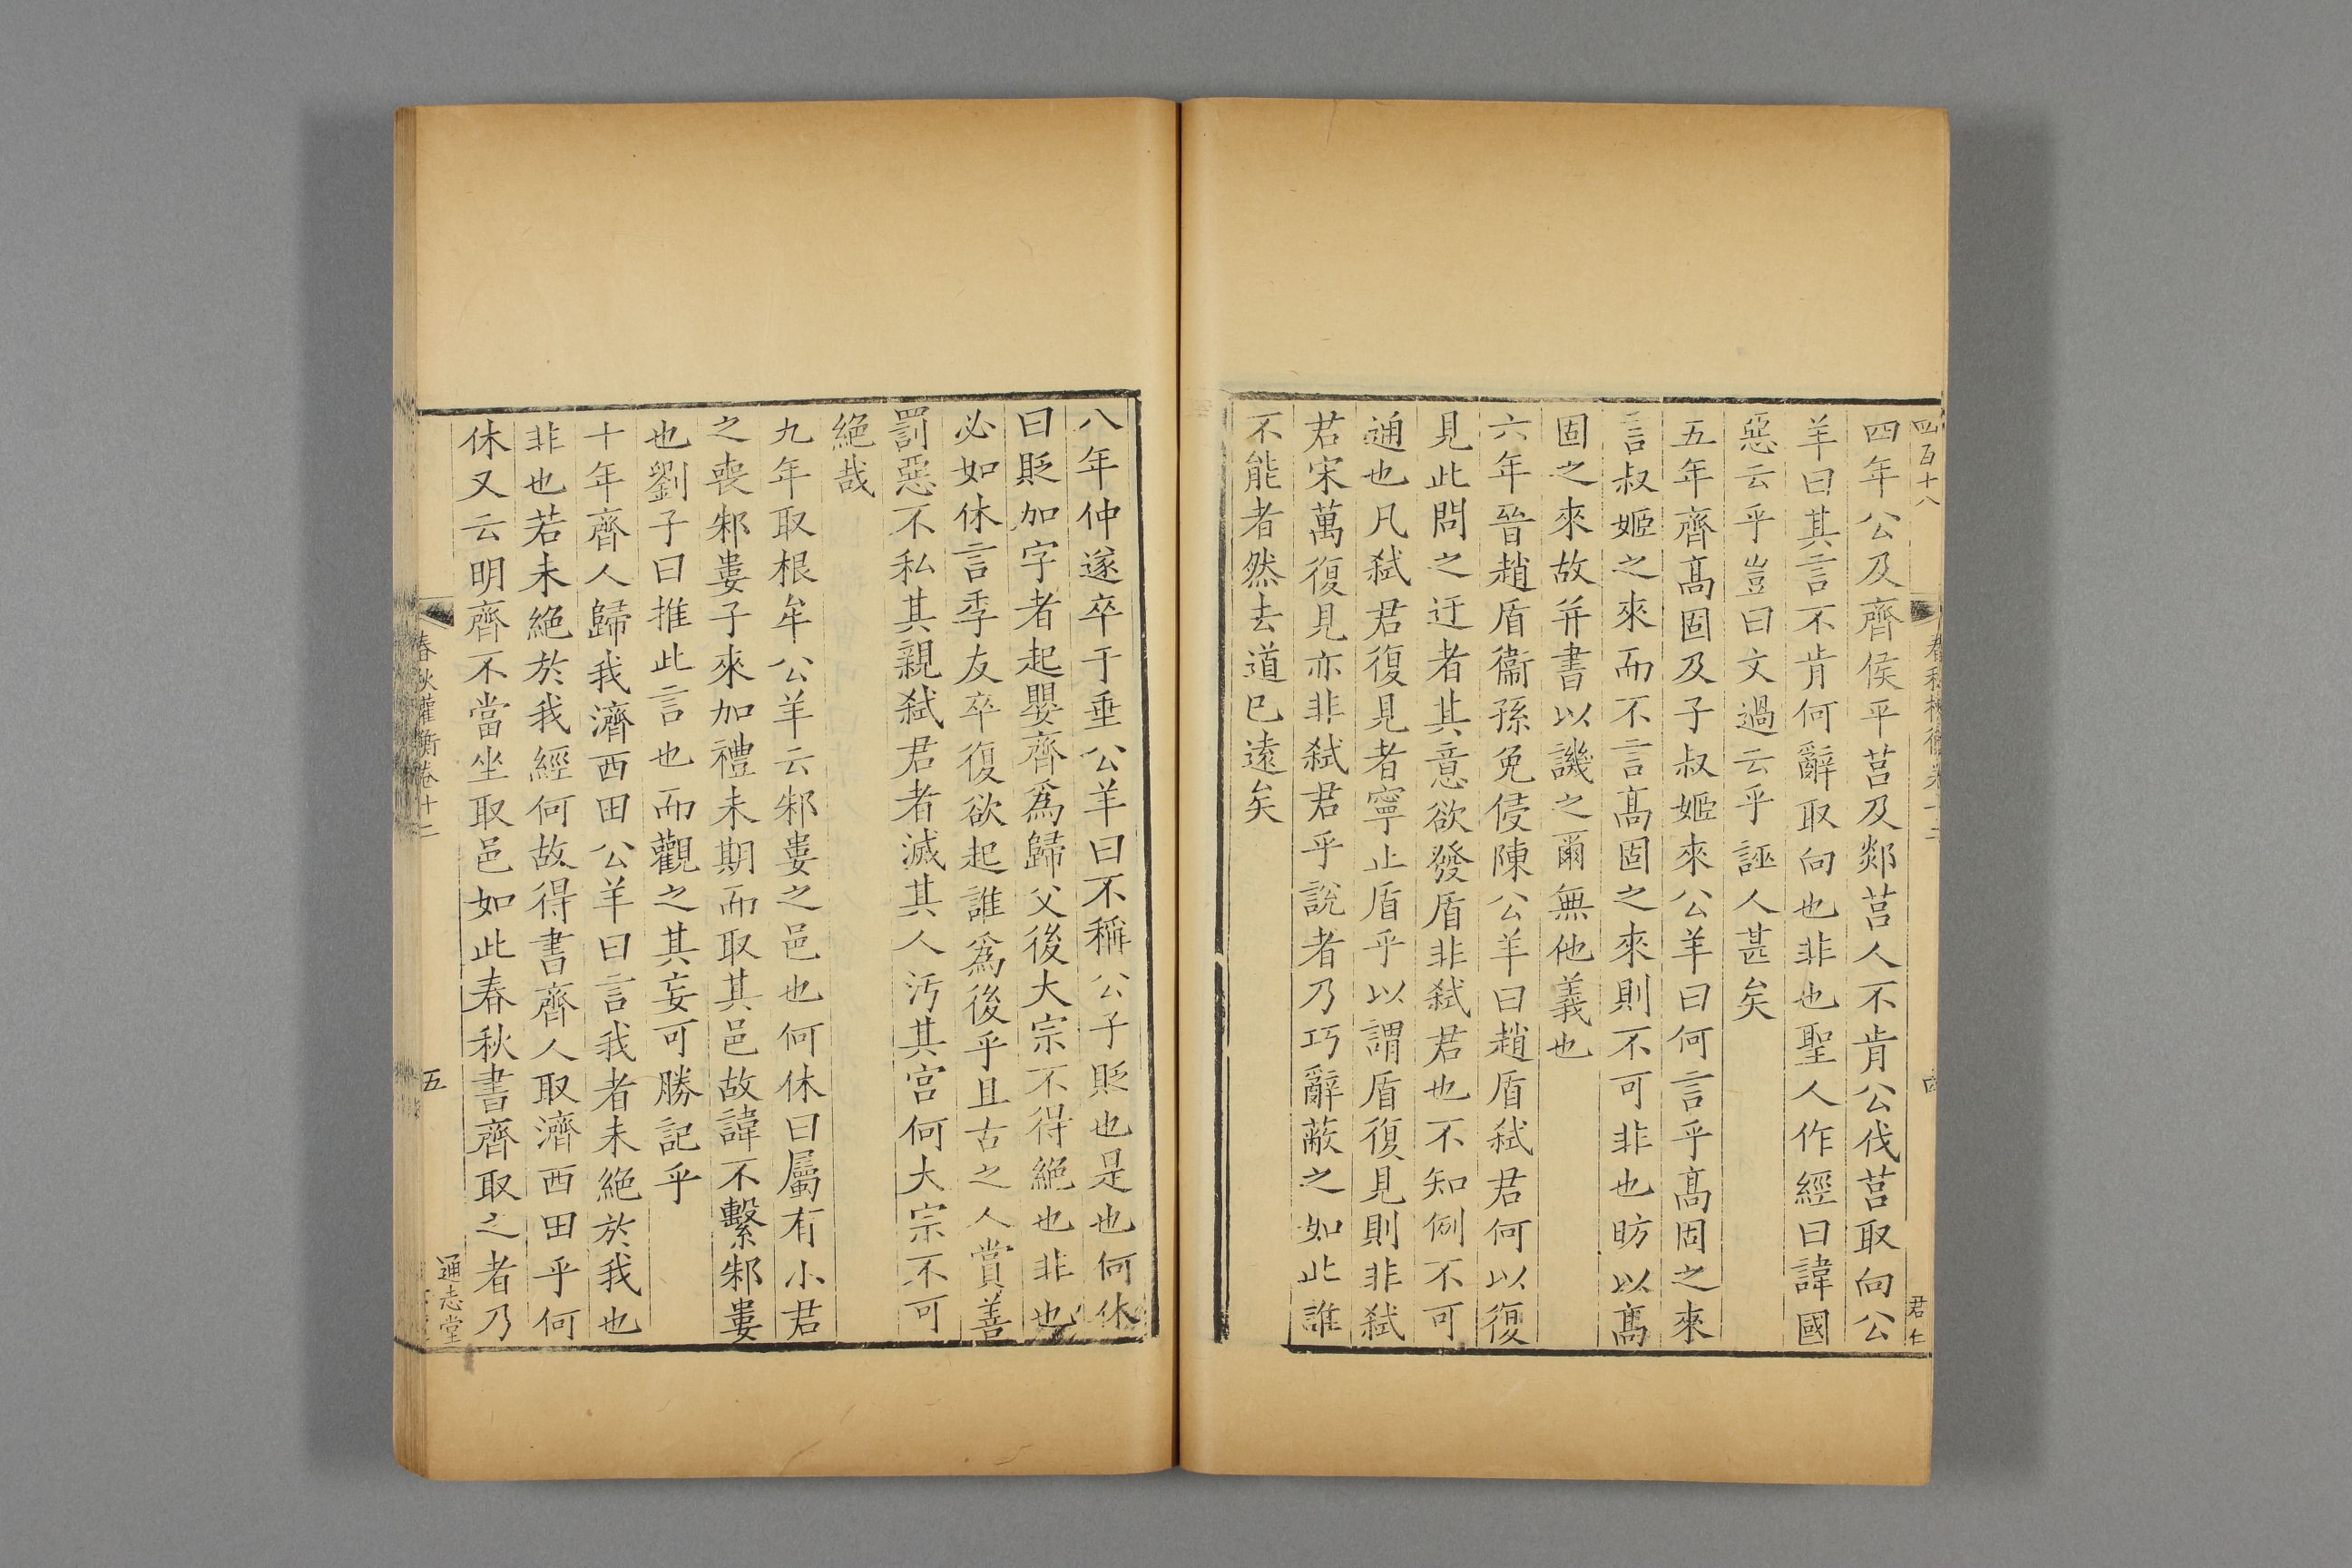 四百十八
春秋權衡卷十二
四
君仁
四年公及齊侯平莒及郯莒人不肯公伐莒取向公
羊曰其言不肯何辭取向也非也聖人作經曰諱國
惡云乎豈曰文過云乎誣人甚矣
五年齊髙固及子叔姬來公羊曰何言乎髙固之來
言叔姬之來而不言髙固之來則不可非也昉以髙
固之來故并書以譏之爾無他義也
六年晉趙盾衞孫免侵陳公羊曰趙盾弑君何以復
見此問之迂者其意欲發盾非弑君也不知例不可
通也凡弑君復見者寧止盾乎以謂盾復見則非弑
君宋萬復見亦非弑君乎說者乃巧辭蔽之如此誰
不能者然去道已遠矣
八年仲遂卒于垂公羊曰不稱公子貶也是也何休
曰貶加字者起嬰齊爲歸父後大宗不得絕也非也
必如休言季友卒復欲起誰爲後乎且古之人賞善
罰惡不私其親弑君者滅其人汚其宫何大宗不可
絕哉
九年取根牟公羊云邾婁之邑也何休曰屬有小君
之喪邾婁子來加禮未期而取其邑故諱不繫邾婁
也劉子曰推此言也而觀之其妄可勝記乎
十年齊人歸我濟西田公羊曰言我者未絕於我也
非也若未絕於我經何故得書齊人取濟西田乎何
休又云明齊不當坐取邑如此春秋書齊取之者乃
春秋權衡卷十二
五
通志堂